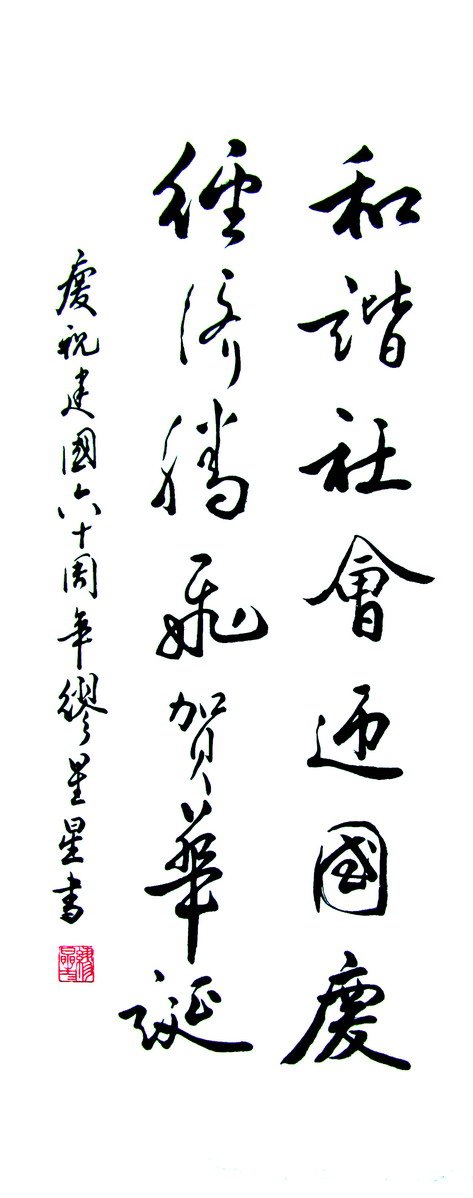 和諧社會迎國慶
經济腾飛賀華誕
慶祝建國六十周年繆星星書